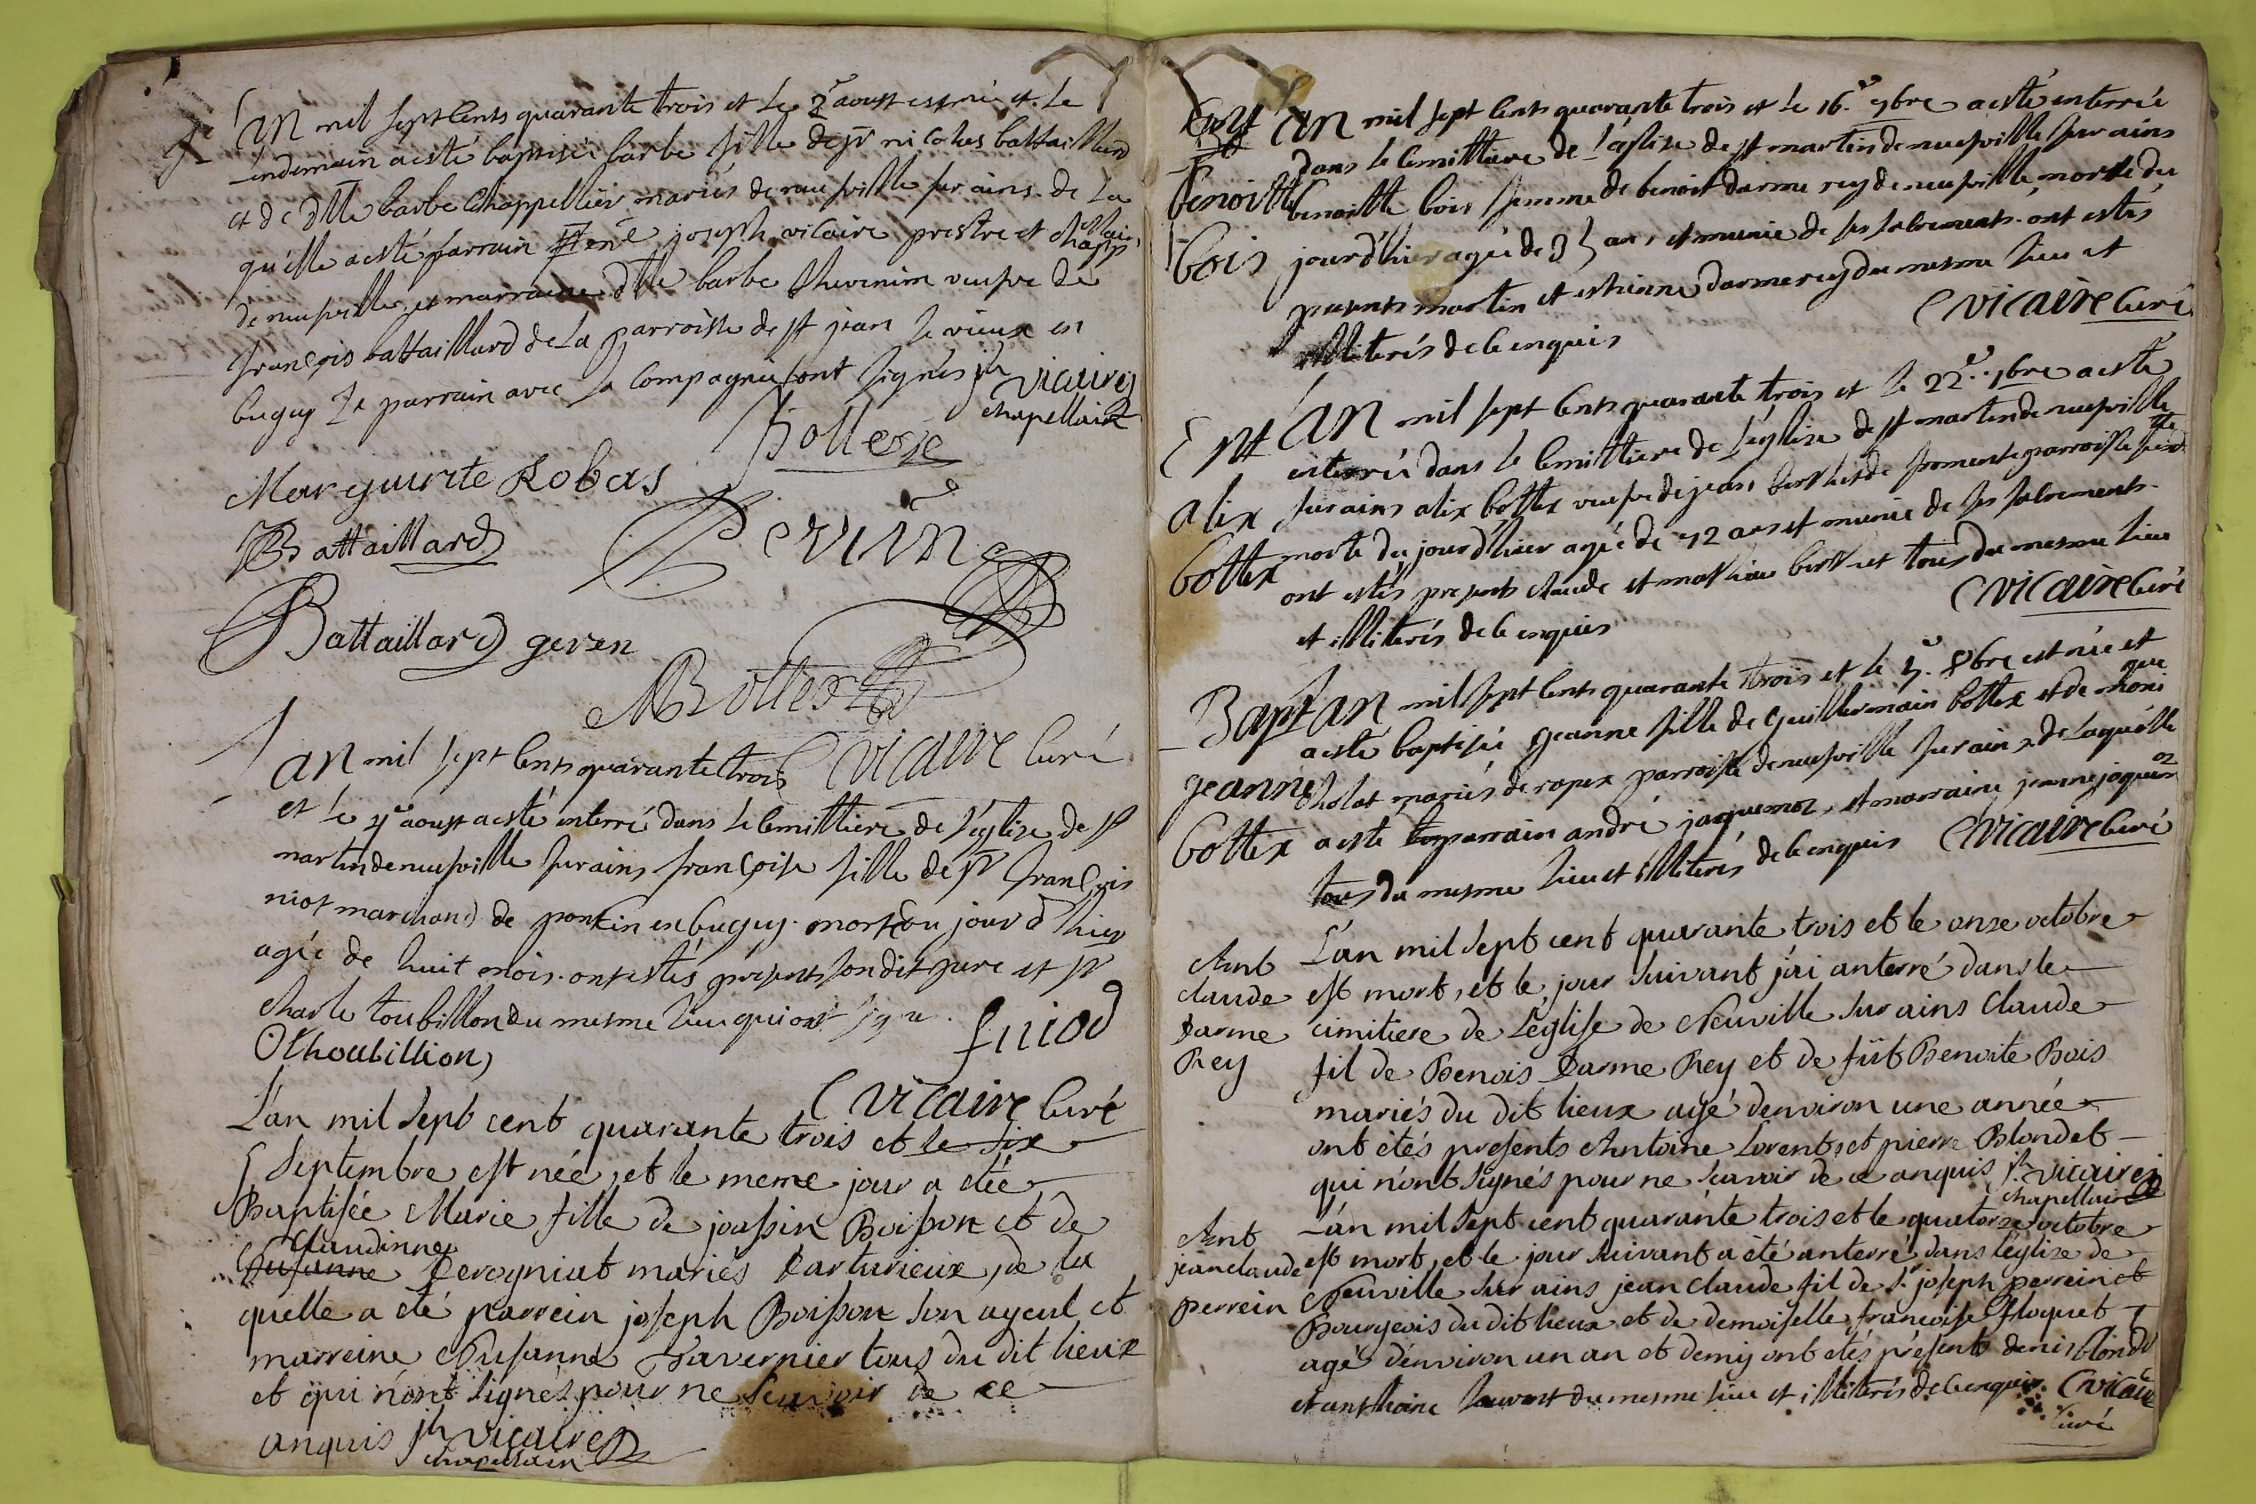 L'an mil sept cents quarante trois et le 2e aoust est née et le
lendemain a esté baptisée barbe fille de sr nicolas battaillard
et de dlle barbe chappellier mariés de neufville sur ains de la
qu'elle a esté parrain joseph vicaire prestre et chapp
de neufville et marraine dlle barbe thevenin veufve de
françois battaillard de la parroisse de st jean le vieux en
bugey le parrain avec sa compagnie sont signés jh vicaire
chapellain
Bottex
Marguirite Robas
Battaillard
Pervin
Battaillard geren
MBottex
L'an mil sept cents quarante trois C vicaire curé
et le 4e aoust a esté enterré dans le cemittiere de l'eglise de st
martin de neufville sur ains françoise fille de sr françois
niot marchand de poncin en bugey morte du jour d'hier
agée de huit mois ont estés présents son dit pere et sr
charle toubillon du mesme lieu qui ont signé
f niod
C thoubillion
C vicaire curé
L'an mil sept cent quarante trois et le six
septembre est née, et le meme jour a étée
Baptisée Marie fille de joassin Boisson et de
Claudinne
Susanne Derogniat mariés Darturieux, de la
quelle a été parrein joseph Boisson son ayeul et
marreine Susanne Tavernier tous du dit lieux
et qui n'ont signés pour ne scavoir de ce
anquis jh vicaire
chapellain
Ent L'an mil sept cents quarante trois et le 16e 7bre a esté enterrée
dans le cemittiere de l'eglise de st martin de neufville sur ains
benoitte benoitte bois femme de benoit darme rey de neufville morte du
bois jour d'hier agée de 35 ans et munie de ses sacrements ont estés
presents martin et estienne darmerey du mesme lieu et
illiterés de ce enquis C vicaire curé
Ent L'an mil sept cents quarante trois et le 22e 7bre a esté
enterrée dans le cemittiere de l'eglise de st martin de neufville
alix sur ains alix bottex veufve de jean berthet de fromente parroisse sud
bottex morte du jour d'hier agée de 72 ans et munie de ses sacrements
ont estés presents claude et mathieu berthet tous du mesme lieu
et illiterés de ce enquis C vicaire curé
Bapt L'an mil sept cents quarante trois et le 5e 8bre est née et
a esté baptisée jeanne fille de guillermain bottex et de moni
que
jeanne cholat mariés de rapex parroisse de neufville sur ains de laquelle
bottex a esté parrain andré jaquemoz, et marraine jeanne jaquemoz
tous du mesme lieu et illiterés de ce enquis C vicaire curé
Ant L'an mil sept cent quarante trois et le onze octobre
claude est mort, et le jour suivant j'ai anterré dans le
Darme cimitiere de l'église de Neuville sur ains Claude
Rey fil de Benois Darme Rey et de füt Benoite Bois
mariés du dit lieux agé d'environ une année
ont étés presents Antoine Lorent, et pierre Blondet
qui n'ont signés pour ne scavoir de ce anquis, jh vicaire
chapellain
Ant L'an mil sept cent quarante trois et le quatorze octobre
jean claude est mort, et le jour suivant a été anterré dans l'église de
perrein Neuville sur ains jean claude fil de sr joseph perrein et
Bourgeois du dit lieux et de demoiselle françoise Floquet
agé d'environ un an et demy ont étés présents denis blondet
et anthoine lauvent du mesme lieu et illiterés de ce enquis C vicaire
curé